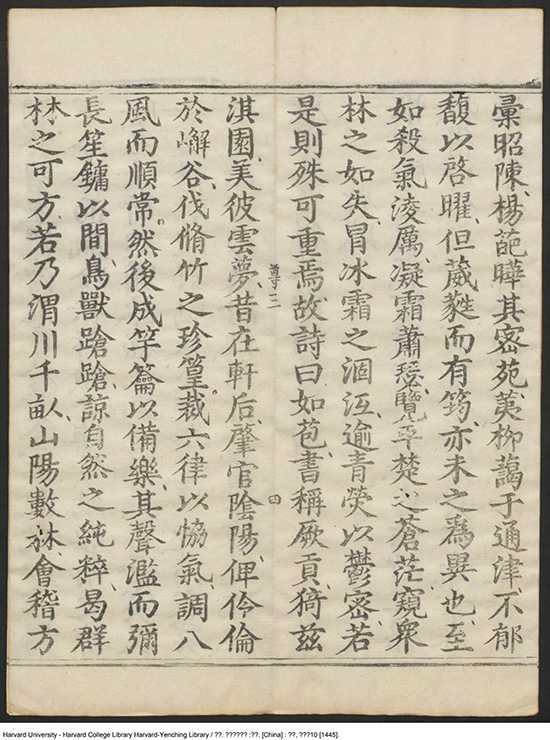 彙昭陳楊葩曄其密苑荑柳藹于通津不郁
馥以啓曜但葳蕤而有筠亦未之爲異也至
如殺氣淩厲凝霜蕭瑟覽平楚之蒼茫窺衆
林之如失冒冰霜之涸沍逾青熒以鬱密若
是則殊可重焉故詩曰如苞書稱厥貢猗兹
四
淇園美彼雲夢昔在軒后肇官陰陽俾伶倫
於嶰谷伐脩竹之珍篁裁六律以恊氣調八
風而順常然後成竽籥以備樂其聲濫而彌
長笙鏞以間鳥獸蹌蹌諒自然之純粹曷群
林之可方若乃渭川千畝山陽數林會稽方
Harvard University - Harvard College Library Harvard-Yenching Library / ??. ?????? :??. [China] : ??, ???10 [1445].